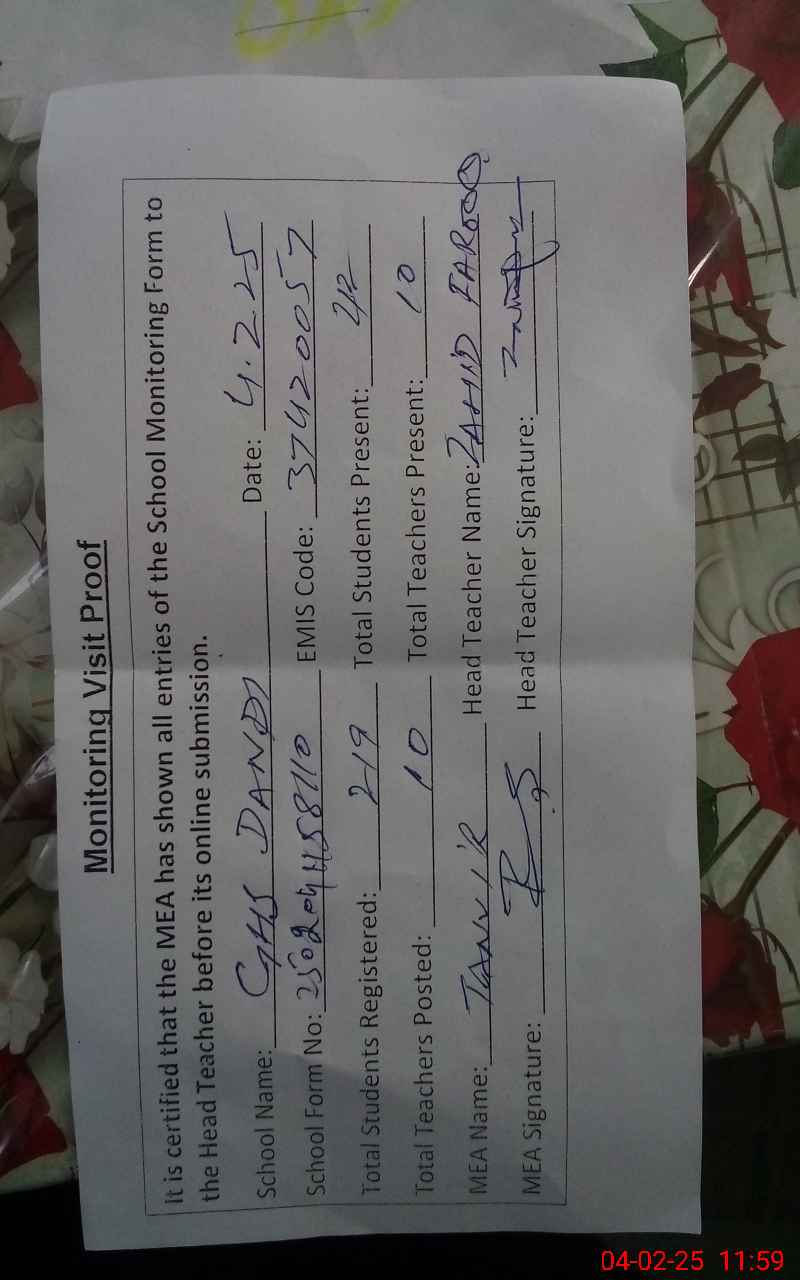 Monitoring Visit Proof
It is certified that the MEA has shown all entries of the School Monitoring Form to
the Head Teacher before its online submission.
School Name: GHS DANDI Date: 4.2.25
School Form No: 250204458110 EMIS Code: 37420057
Total Students Registered: 219 Total Students Present:
Total Teachers Posted: 10 Total Teachers Present: 10
MEA Name: TANVIR Head Teacher Name: ZAHID FAROOQ
MEA Signature: Head Teacher Signature:
04-02-25 11:59